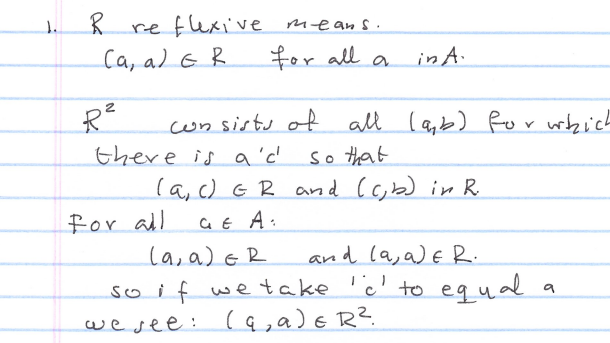 1. R reflexive means.
(a, a) ∈ R for all a in A.
R² consists of all (a,b) for which
there is a 'c' so that
(a, c) ∈ R and (c,b) in R.
For all a ∈ A:
(a, a) ∈ R and (a, a) ∈ R.
so if we take 'c' to equal a
we see: (a, a) ∈ R².